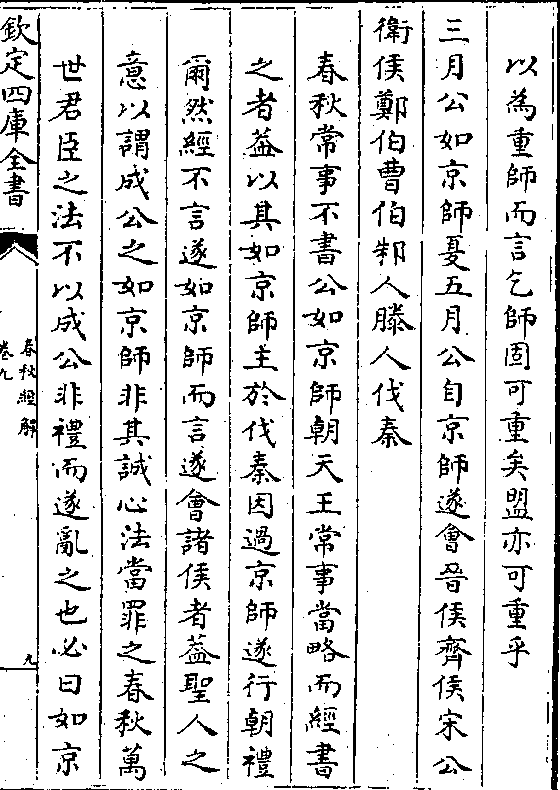 以為重師而言乞師固可重矣盟亦可重乎
三月公如京師夏五月公自京師遂會晉侯齊侯宋公
衛侯鄭伯曹伯邾人滕人伐秦
春秋常事不書公如京師朝天王常事當略而經書
之者葢以其如京師主於伐秦因過京師遂行朝禮
爾然經不言遂如京師而言遂會諸侯者葢聖人之
意以謂成公之如京師非其誠心法當罪之春秋萬
世君臣之法不以成公非禮而遂亂之也必曰如京
欽定四庫全書
春秋經解
卷九
九